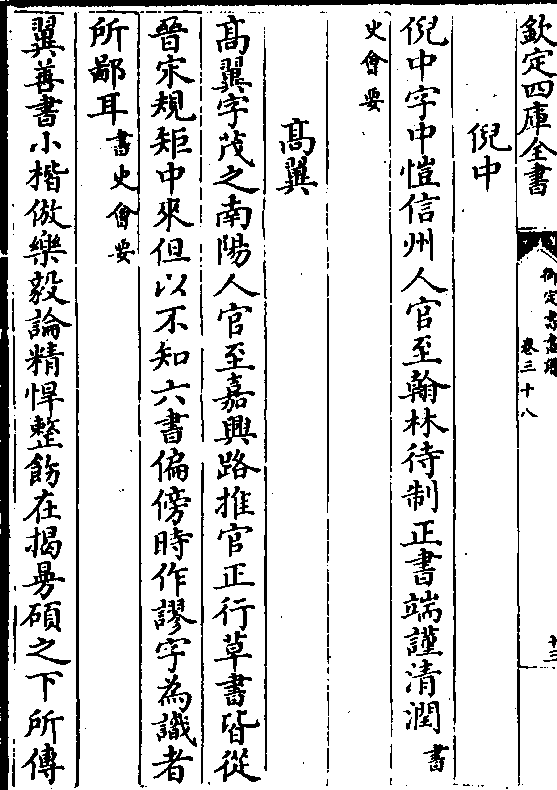 欽定四庫全書
御定書畫譜
卷三十八
十三
倪中
倪中字中愷信州人官至翰林待制正書端謹清潤書
史會要
高翼
高翼字茂之南陽人官至嘉興路推官正行草書皆從
晉宋規矩中來但以不知六書偏傍時作謬字為識者
所鄙耳書史會要
翼善書小楷倣樂毅論精悍整飭在揭㬅碩之下所傳